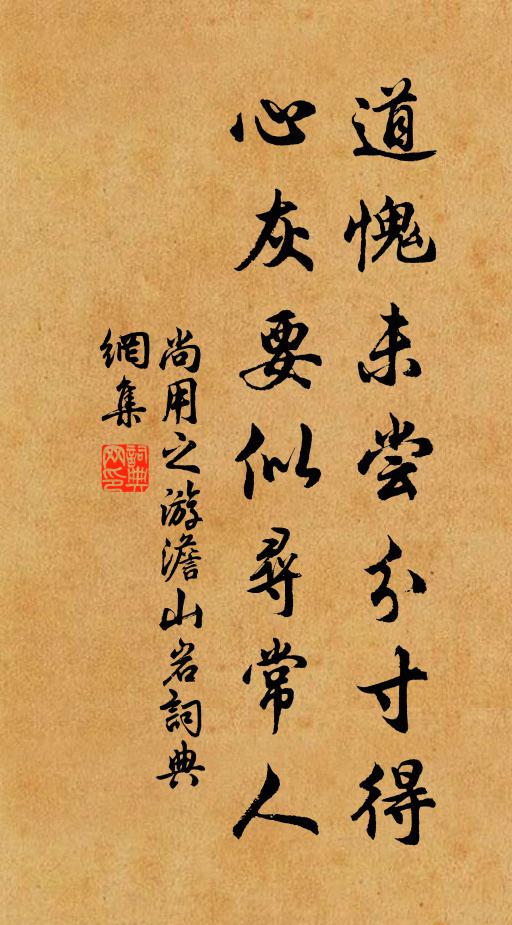 道愧未尝分寸得
心灰要似尋常人
尚用之游澹山岩詞典
網集
詞典
网印